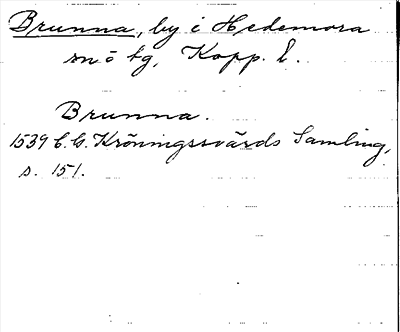 Brunna, by i Hedemora
sn o tg, Kopp. l.
Brunna.
1539 C. G. Kröningssvärds Samling,
s. 151.